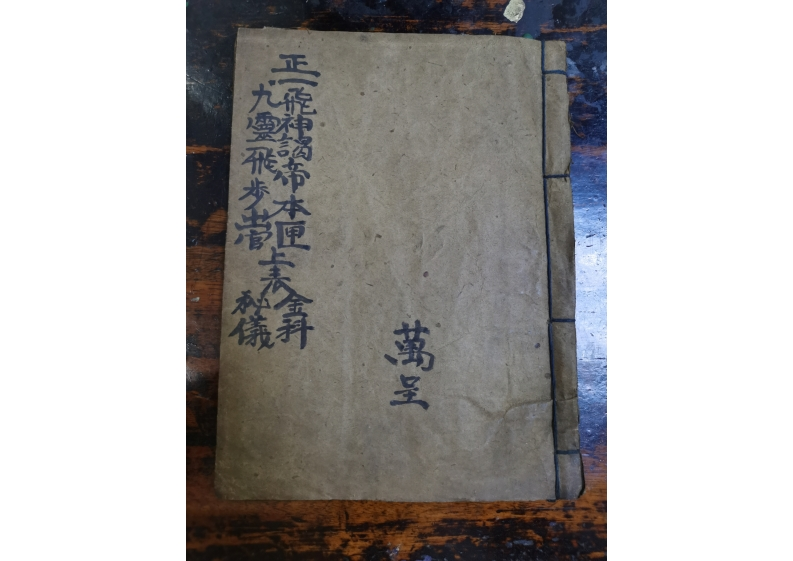 正一飛神謁帝本匣
九靈飛步
上表
金科
秘儀
萬呈